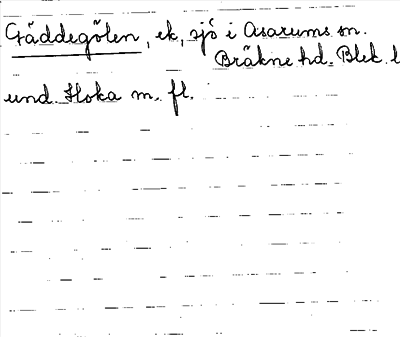 Gäddegölen, ek, sjö i Asarums sn.
Bräkne hd. Blek. l
und. Hoka m. fl.